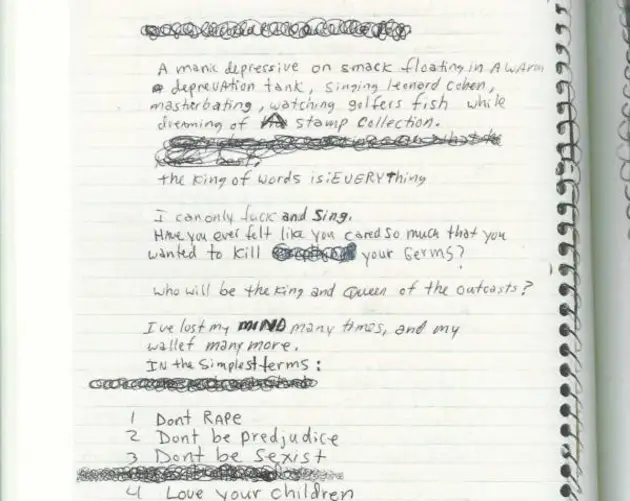 A manic depressive on smack floating in A wArm
depreuAtion tank, singing leonord cohen,
masherbating, watching golfers fish while
dreaming of A stamp collection.
the King of words is:EVERYthing
I can only fuck and Sing.
Have you ever felt like you cared so much that you
wanted to kill your Germs?
Who will be the King and Queen of the outcasts?
I've lost my MIND many times, and my
wallet many more.
IN the simplest terms:
1 Dont RAPE
2 Dont be predjudice
3 Dont be Sexist
4 Love your children